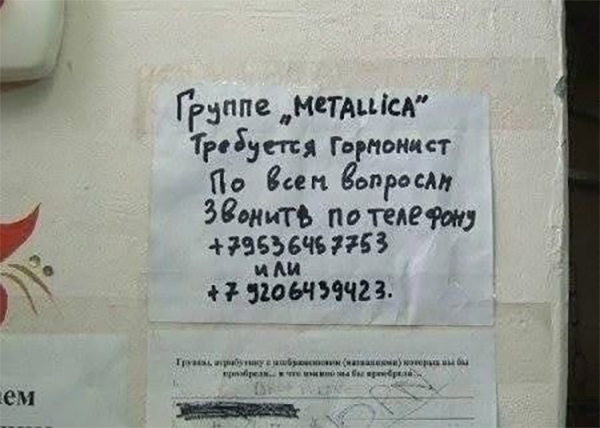 Группе „METALLiCA”
Требуется гормонист
По всем вопросам
Звонить по телефону
+79536457753
или
+7 9206439423.
Группы, атрибутику с изображением (названиями) которых вы бы
приобрели... и что именно вы бы приобрели...
ем